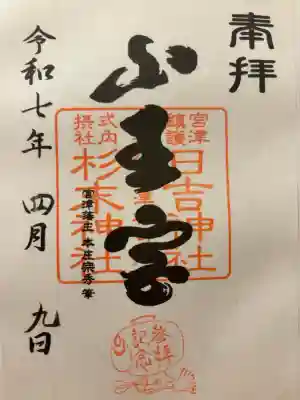 奉拝
山王宮
宮津
鎮護
日吉神社
式内
摂社
杉末神社
宮津藩主 本庄宗秀 筆
参拝
記念
令和七年 四月 九日